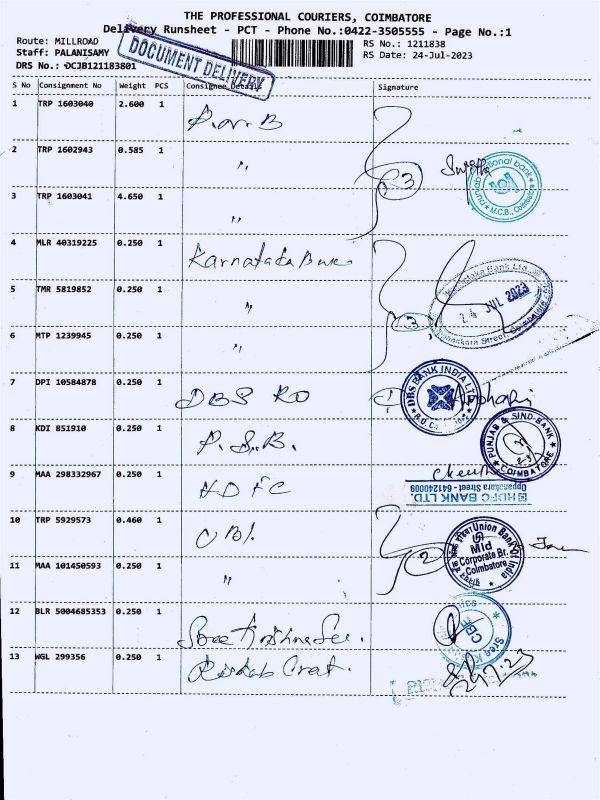 THE PROFESSIONAL COURIERS, COIMBATORE
Delivery Runsheet - PCT - Phone No.:0422-3505555 - Page No.:1
Route: MILLROAD RS No.: 1211838
Staff: PALANISAMY RS Date: 24-Jul-2023
DRS No.: DCJB121183801
DOCUMENT DELIVERY
S No Consignment No Weight PCS Consignee Details Signature
1 TRP 1603040 2.600 1
2 TRP 1602943 0.585 1 "
3
PUNJAB national bank M.C.B., Coimbatore
3 TRP 1603041 4.650 1 "
4 MLR 40319225 0.250 1 Karnataka Bank
5 TMR 5819852 0.250 1 "
3
Karnataka Bank Ltd.
24 JUL 2023
6 MTP 1239945 0.250 1 "
7 DPI 10584878 0.250 1 DBS RO
1
DBS BANK INDIA LTD
8 KDI 851910 0.250 1 P.S.B.
PUNJAB & SIND BANK COIMBATORE
9 MAA 298332967 0.250 1 HDFC
HDFC BANK LTD.
Oppanakara Street - 641240009
10 TRP 5929573 0.460 1 UBI.
2
Union Bank Of India
Mid
Corporate Br.
Coimbatore
11 MAA 101450593 0.250 1 "
12 BLR 5004685353 0.250 1
CBE
13 WGL 299356 0.250 1
24.7.23